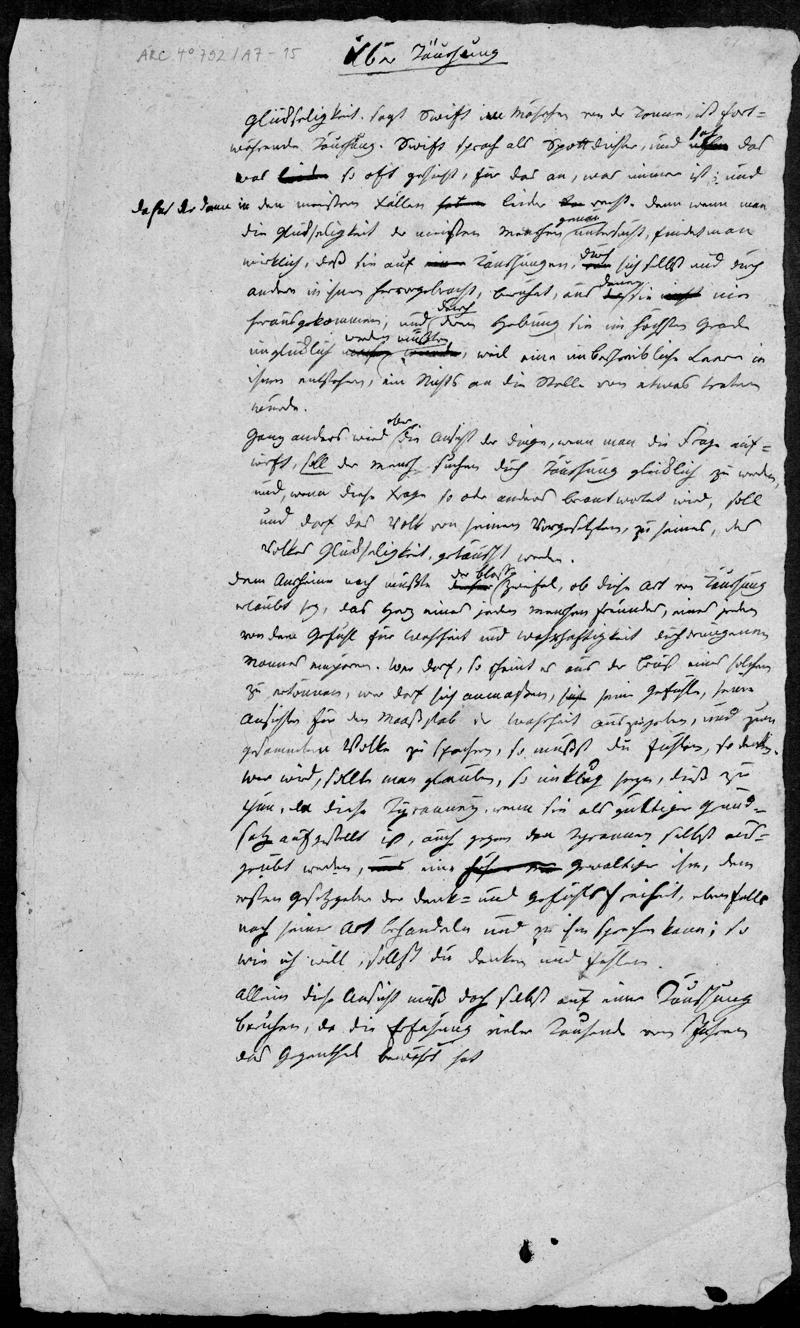 ARC. 4° 792 / A7 - 15
Über Täuschung
Glückseligkeit, sagt Swift im Märchen von der Tonne, ist fort=
währende Täuschung. Swift sprach als Spottdichter, und sah das
was so oft geschieht, für das an, was immer ist; und
da hat er dann in den meisten Fällen leider recht. denn wenn man
die Glückseligkeit der meisten Menschen genau untersucht, findet man
wirklich, daß sie auf Täuschungen, durch sich selbst und durch
andere in ihnen hervorgebracht, beruhet, aus denen sie nie
herausgekommen, und durch deren Hebung sie im höchsten Grade
unglücklich werden müßten, weil eine unbeschreibliche Leere in
ihnen entstehen, ein Nichts an die Stelle von etwas treten
würde.
Ganz anders wird aber die Ansicht der Dinge, wenn man die Frage auf=
wirft, soll der Mensch suchen durch Täuschung glücklich zu werden,
und, wenn diese Frage so oder anders beantwortet wird, soll
und darf das Volk von seinen Vorgesetzten, zu seiner, des
Volkes Glückseligkeit, getäuscht werden.
Dem Anscheine nach müßte der bloße Zweifel, ob diese Art von Täuschung
erlaubt sey, das Herz eines jeden Menschenfreundes, eines jeden
von dem Gefühl für Wahrheit und Wahrhaftigkeit durchdrungenen
Mannes empören. Wer darf, so scheint es aus der Brust eines solchen
zu ertönen, wer darf sich anmaßen, seine Gefühle, seine
Ansichten für den Maaßstab der Wahrheit auszugeben, und zum
gesammten Volke zu sprechen, so mußt du fühlen, so denken.
Wer wird, sollte man glauben, so unklug seyn, dieß zu
thun, da diese Tyranney, wenn sie als gültiger Grund=
satz aufgestellt ist, auch gegen den Tyrannen selbst aus=
geübt werden, ein gewaltiger ihn, den
ersten Gesetzgeber der Denk= und Gefühlsfreiheit, ebenfalls
nach seiner Art behandeln und zu ihm sprechen kann; so
wie ich will, sollst du denken und fühlen.
Allein diese Ansicht muß doch selbst auf einer Täuschung
beruhen, da die Erfahrung vieler Tausende von Jahren
das Gegentheil bewährt hat